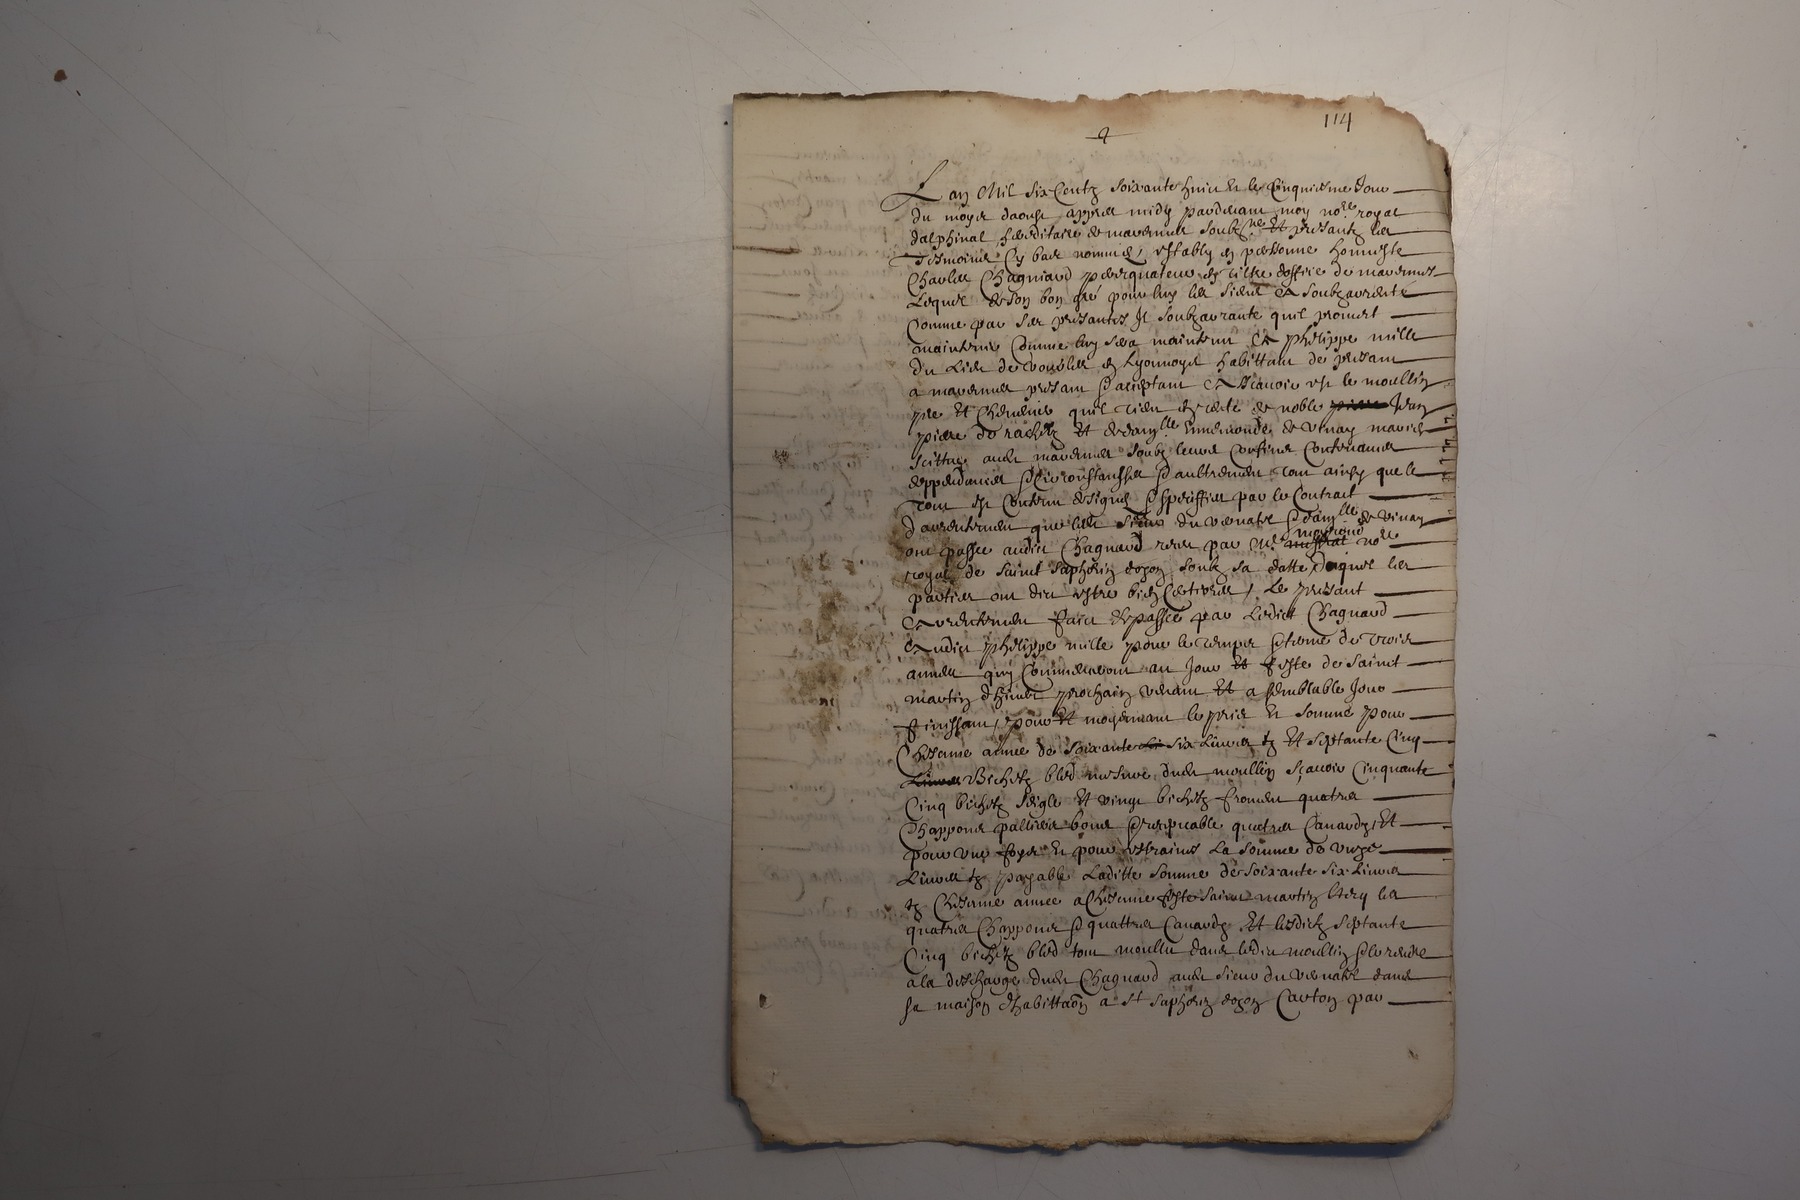 114
Lan Mil six Centz soixante huict et le cinquiesme Jour
du moys daoust appres midy pardevant moy no.re royal
dalphinal hereditaire de marennes soubz.né et presantz les
Tesmoins Cy bas nommés, estably en personne honneste
Charles Chagniard perequateur en tiltre doffice de marennes
Lequel de son bon gré pour luy les siens A soubzarenté
Comme par ses presantes Il soubzarrante quil promect
maintenir Comme luy sera maintenu A Phelippe mille
du Lieu de en Lyonnoys habittant de presant
a marennes presant & acceptant A Scavoir est le moullin
pre et Cheneuie quil tient en rente de noble pierre Jean
piere de rachetz et de damy.lle de vinay mariés
scittué aud marennes soubz leurs Confins Contenances
deppendances & Circonstansses & aultrement tout ainsy que le
Tout est Contenu designé & speciffié par le Contract
darrentement que led sieur du vernatel & damy.lle de vinay
ont passée audict Chagnard receu par M.e mistral no.re
royal de sainct saphorin dozon soubz sa datte duquel les
parties ont dict estre bien Certiorées, Le presant
Arrentement faict & passée par Ledict Chagnard
Audict phelippe mille pour le temps & terme de trois
années quy Commenceront au Jour et feste de sainct
martin dhiver prochain venant et a semblable Jour
finissant, pour et moyennant le pris et somme pour
Chescune année de soixante Li six Livres tz et septante Cinq
Livres Bichetz bled mesure dud moullin sçavoir Cinquante
Cinq bichetz seigle et vingt bichetz froment quatres
Chappons palliers bons & receptable quatres Canardz, et
pour une foys et pour estraines La somme de unze
Livres tz payable Laditte somme de soixante six Livres
tz Chescune année a Chescune feste sainct martin les
quatres Chappons & quattres Canardz et lesdictz septante
Cinq bichetz bled tout moullu dans ledict moullin & le rendre
a la descharge dud Chagnard aud sieur du vernatel dans
sa maison dhabittaõn a s.t saphorin dozon Carton par